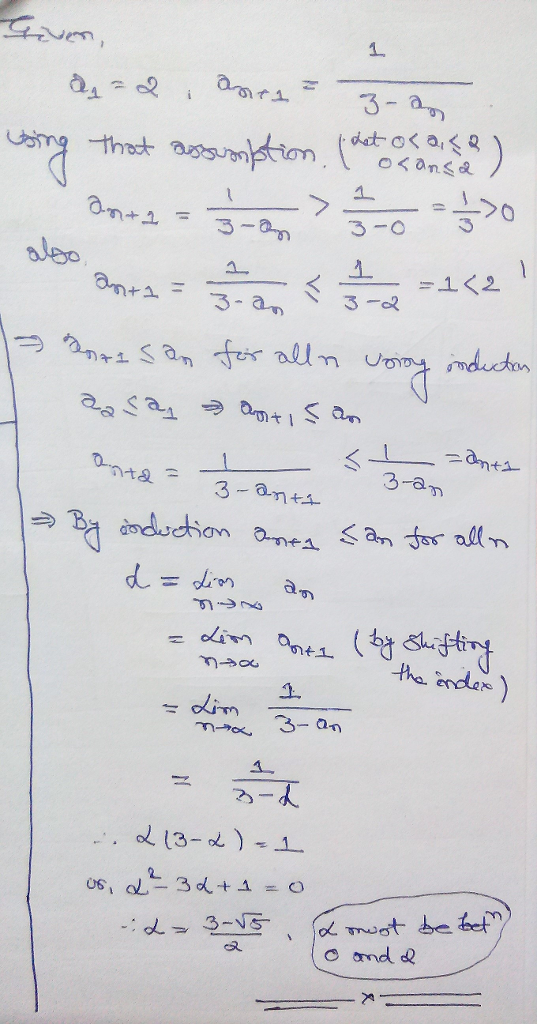 Given,
a₁ = 2 , aₙ₊₁ = 1/(3 - aₙ)
using that assumption. (Let 0 < a₁ ≤ 2
0 < aₙ ≤ 2)
aₙ₊₁ = 1/(3 - aₙ) > 1/(3 - 0) = 1/3 > 0
also,
aₙ₊₁ = 1/(3 - aₙ) ≤ 1/(3 - 2) = 1 < 2
⇒ aₙ₊₁ ≤ aₙ for all n using induction
a₂ ≤ a₁ ⇒ aₙ₊₁ ≤ aₙ
aₙ₊₂ = 1/(3 - aₙ₊₁) ≤ 1/(3 - aₙ) = aₙ₊₁
⇒ By induction aₙ₊₁ ≤ aₙ for all n
α = Lim n→∞ aₙ
= Lim n→∞ aₙ₊₁ (by shifting
the index)
= Lim n→∞ 1/(3 - aₙ)
= 1/(3 - α)
∴ α(3 - α) = 1
or, α² - 3α + 1 = 0
∴ α = (3 - √5)/2 , α must be betⁿ
0 and 2
x